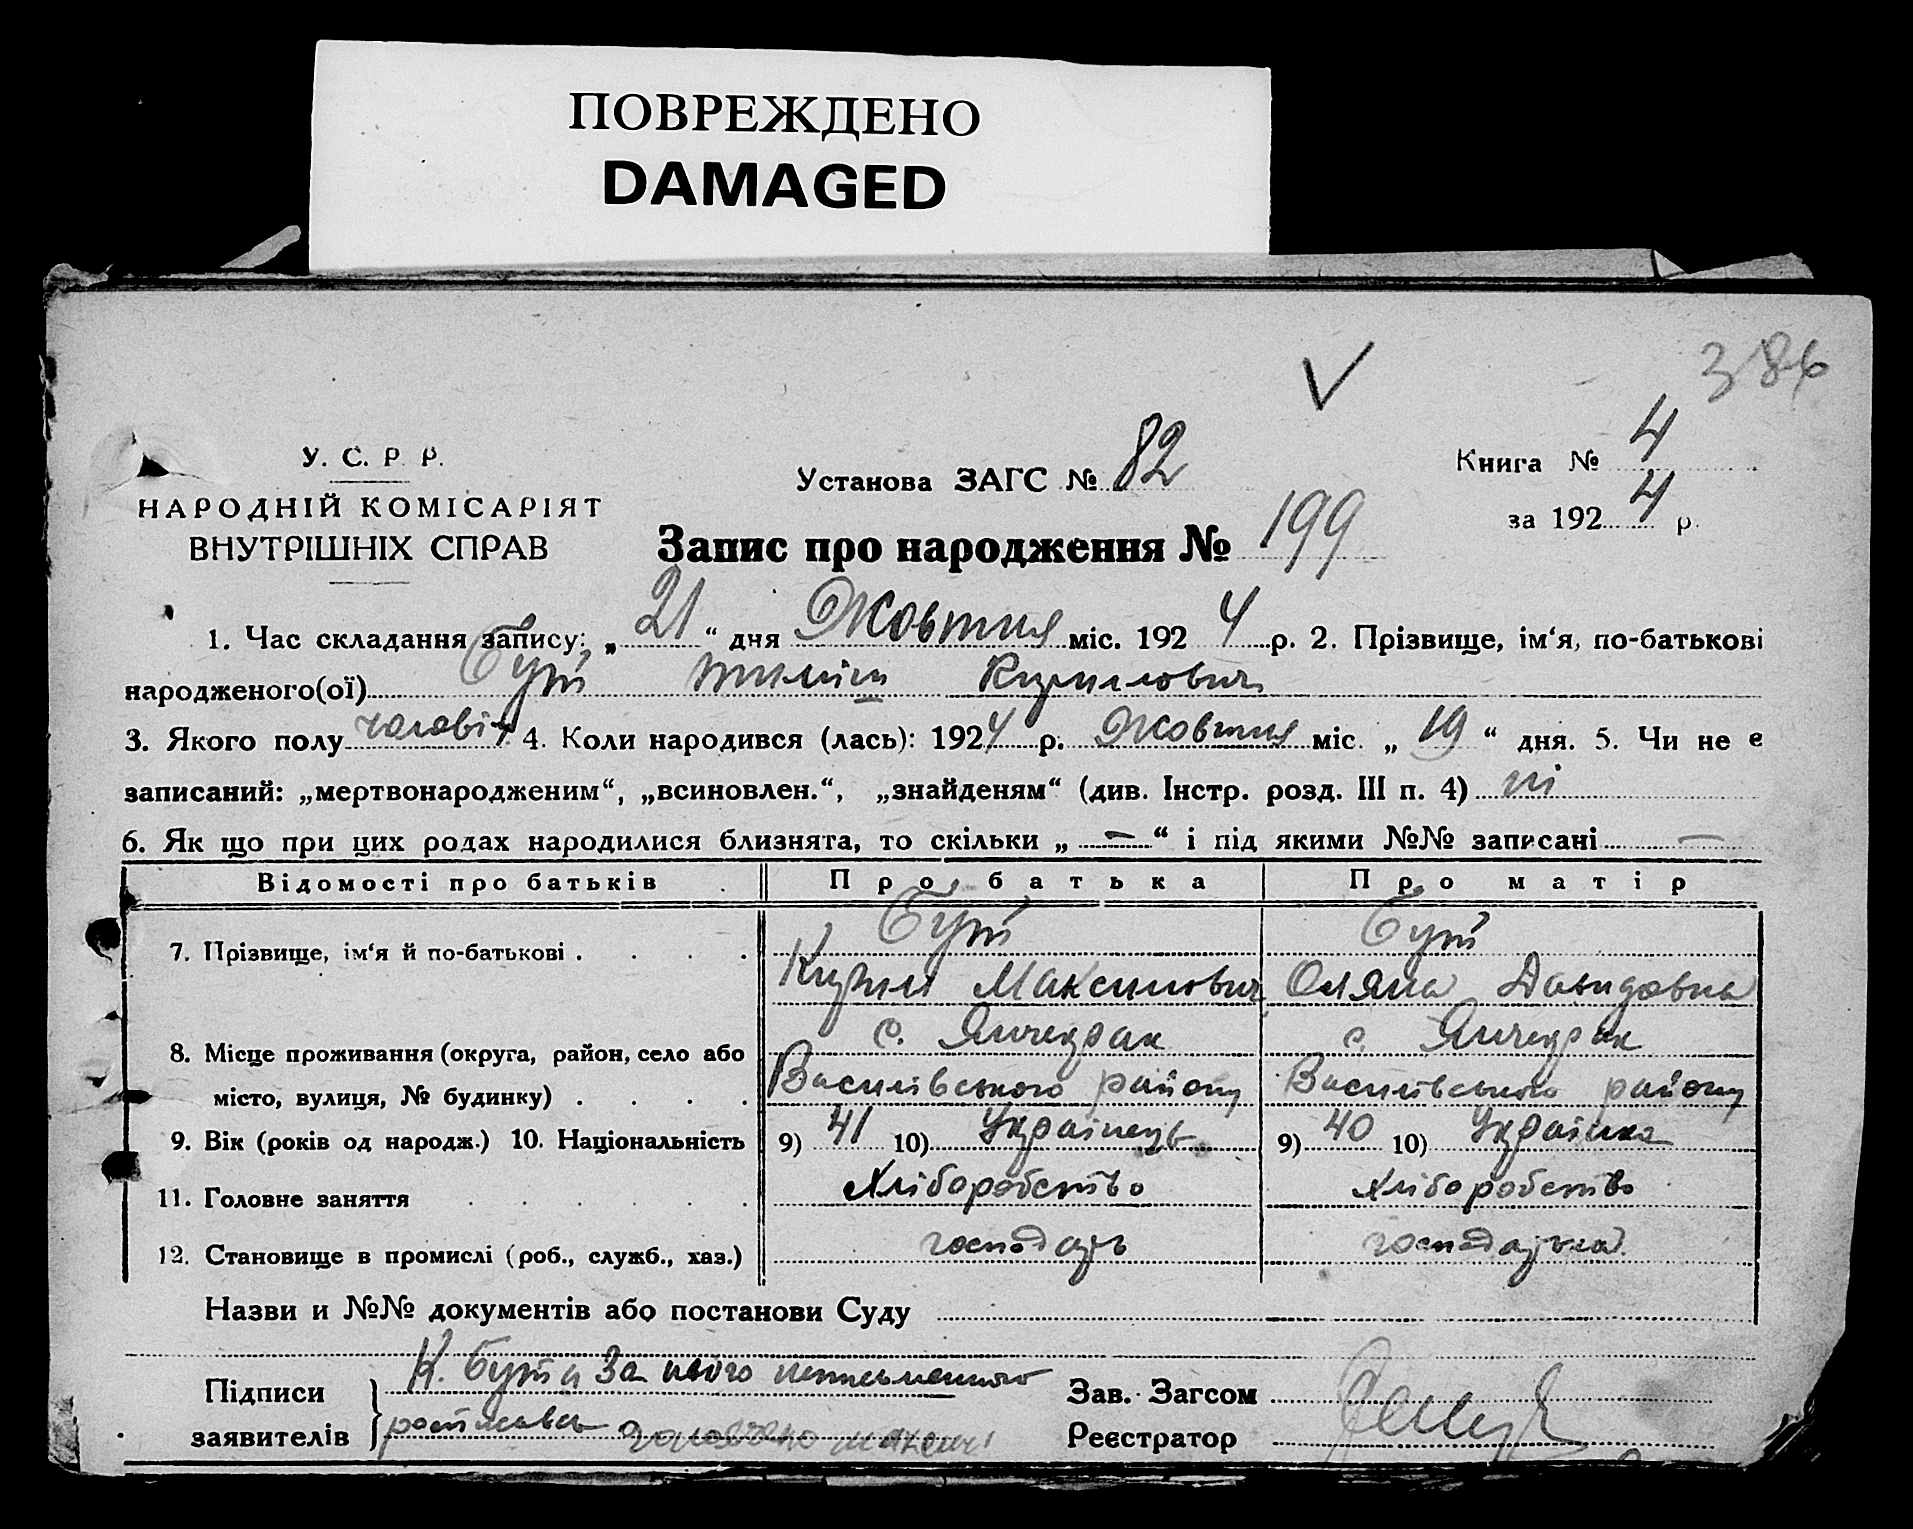 ПОВРЕЖДЕНО
DAMAGED
386
У. С. Р. Р.
НАРОДНІЙ КОМІСАРІЯТ
ВНУТРІШНІХ СПРАВ
Установа ЗАГС № 82
Книга № 4
за 1924 р.
Запис про народження № 199
1. Час складання запису: „21“ дня Жовтня міс. 1924 р. 2. Прізвище, ім‘я, по-батькові
народженого(ої) Бут Кирилович
3. Якого полу чоловіч 4. Коли народився (лась): 1924 р. Жовтня міс. „19“ дня. 5. Чи не є
записаний: „мертвонародженим“, „всиновлен.“, „знайденям“ (див. Інстр. розд. III п. 4) ні
6. Як що при цих родах народилися близнята, то скільки „—“ і під якими №№ записані —
Відомості про батьків Про батька Про матір
7. Прізвище, ім‘я й по-батькові . . . . Бут Бут
Кирил Максимович Оляна Давидовна
8. Місце проживання (округа, район, село або с. Янчекрак с. Янчекрак
місто, вулиця, № будинку) . . . . Василівського району Василівського району
9. Вік (років од народж.) 10. Національність 9) 41 10) Українець 9) 40 10) Українка
11. Головне заняття . . . . . Хліборобство хліборобство
12. Становище в промислі (роб., служб., хаз.) господарь господарька
Назви и №№ документів або постанови Суду
К. Бут а За нього неписьменного
Підписи Зав. Загсом
заявителів росписавсь Реєстратор